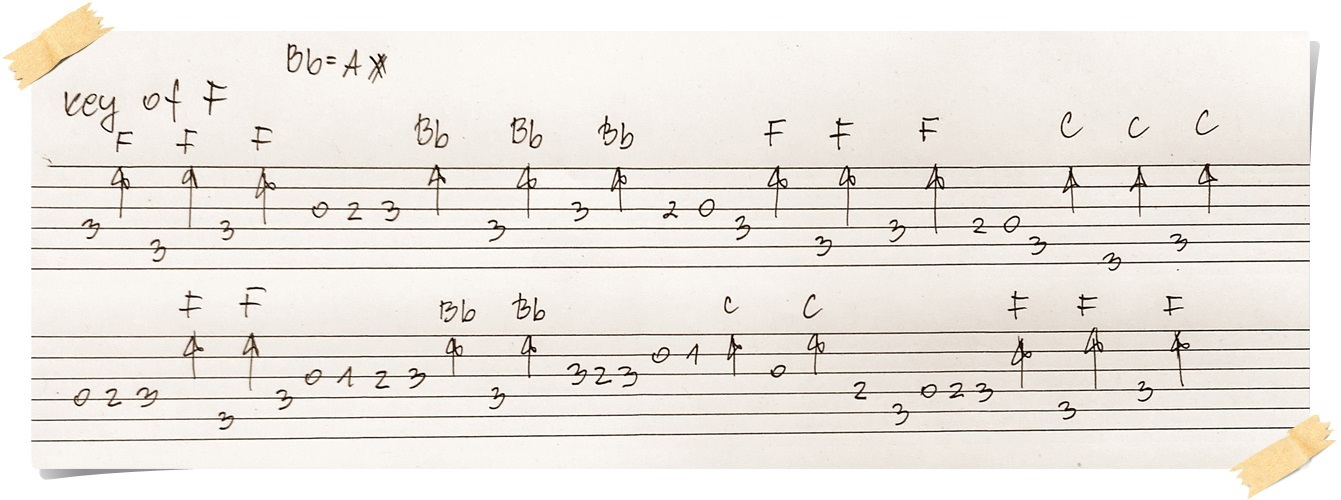 Bb=A
key of F
F F F Bb Bb Bb F F F C C C
3 3 3 0 2 3 3 3 2 0 3 3 3 2 0 3 3 3
F F Bb Bb C C F F F
0 2 3 3 3 0 1 2 3 3 3 2 3 0 1 0 2 3 0 2 3 3 3